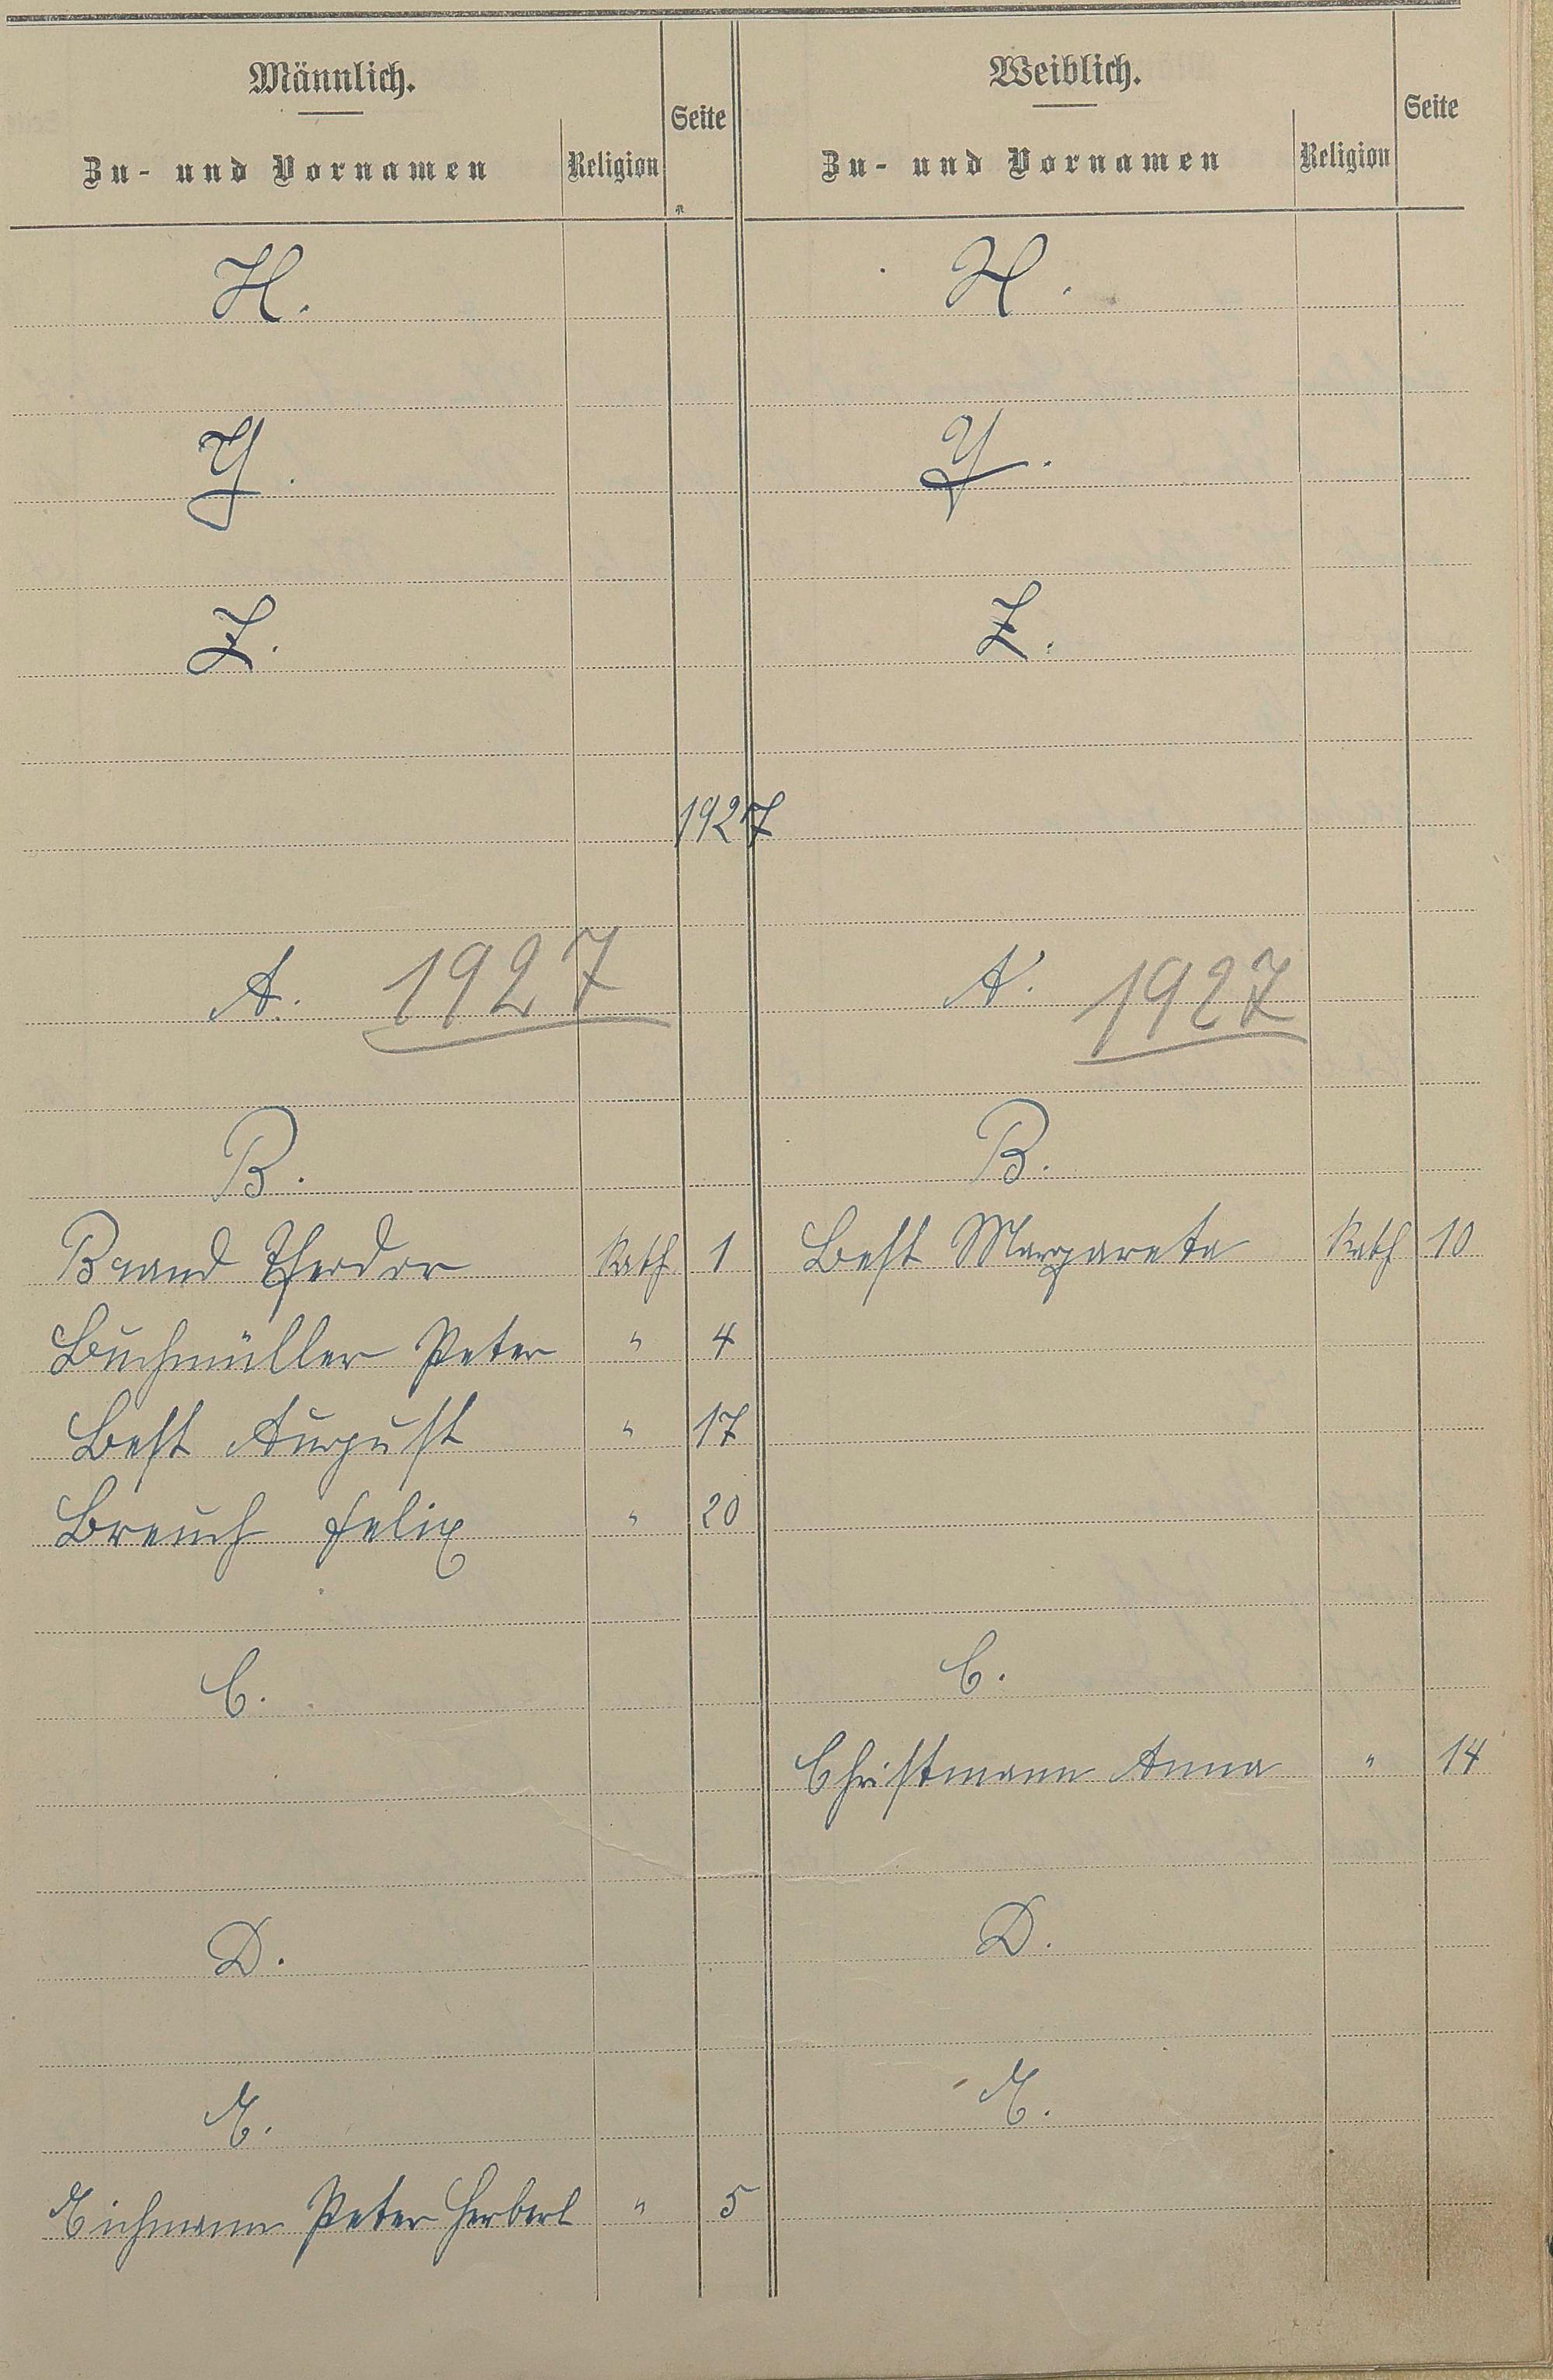 Männlich.
Zu- und Vornamen Religion Seite
Weiblich.
Zu- und Vornamen Religion Seite
X. X.
Y. Y.
Z. Z.
1927
A. 1927 A. 1927
B. B.
Brand Theodor Kath 1 Best Margareta Kath 10
Buchmüller Peter " 4
Best August " 17
Breuch Felix " 20
C. C.
Christmann Anna " 14
D. D.
E. E.
Eichmann Peter Herbert " 5